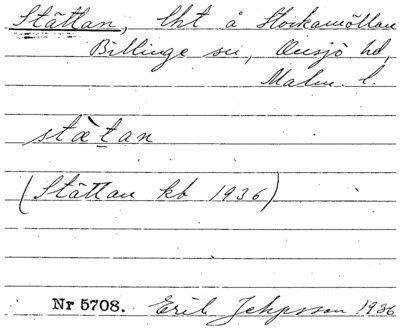 Stättan, lht å Stockamöllan
Billinge sn, Onsjö hd,
Malm. l.
stætan
(Stättan kb 1936)
Nr 5708. Erik Jeppsson 1936